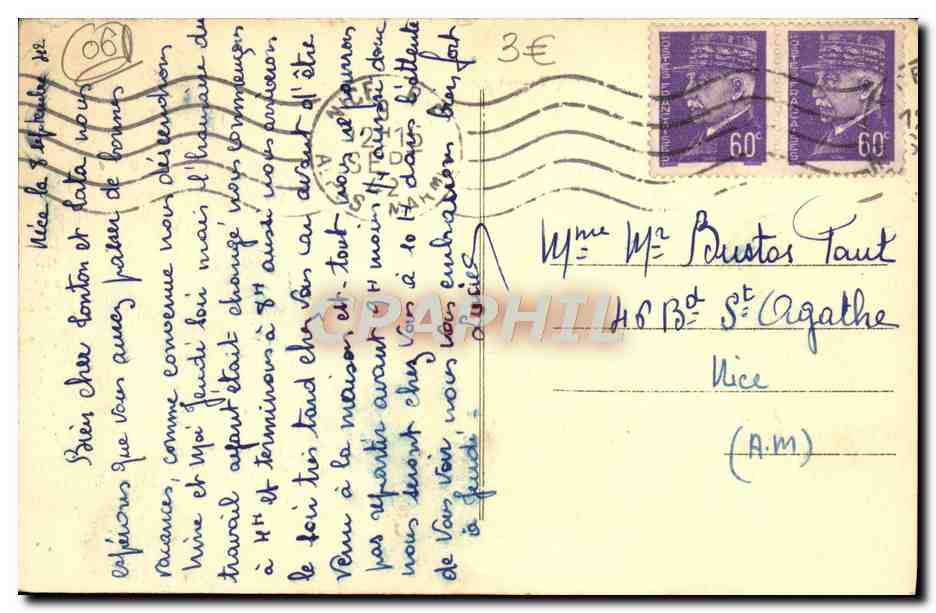 06
3€
Nice le 8 septembre 42
Bien cher tonton et tata nous
espérons que vous avez passer de bonnes
vacances, comme convenue nous désendrons
Mine et Moi Jeudi soir mais l'horaire du
travail ayant était changé nous commençons
à 4H et terminons à 8H aussi nous arriverons
le soir très tard chez vous car avant d'être
venu à la maison et tout nous ne pourrons
pas repartir avant 9H moins 1/4 aussi donc
nous seront chez vous à 10H dans l'attente
de vous voir nous vous embrassons bien fort
à Jeudi.
Lucie
NICE
ALPES
60c
60c
Mme Mr Bustos Paut
46 Bd St Agathe
Nice
(A.M)
CPAPHIL